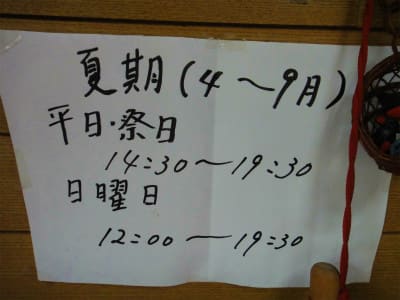 夏期(4～9月)
平日・祭日
14:30～19:30
日曜日
12:00～19:30